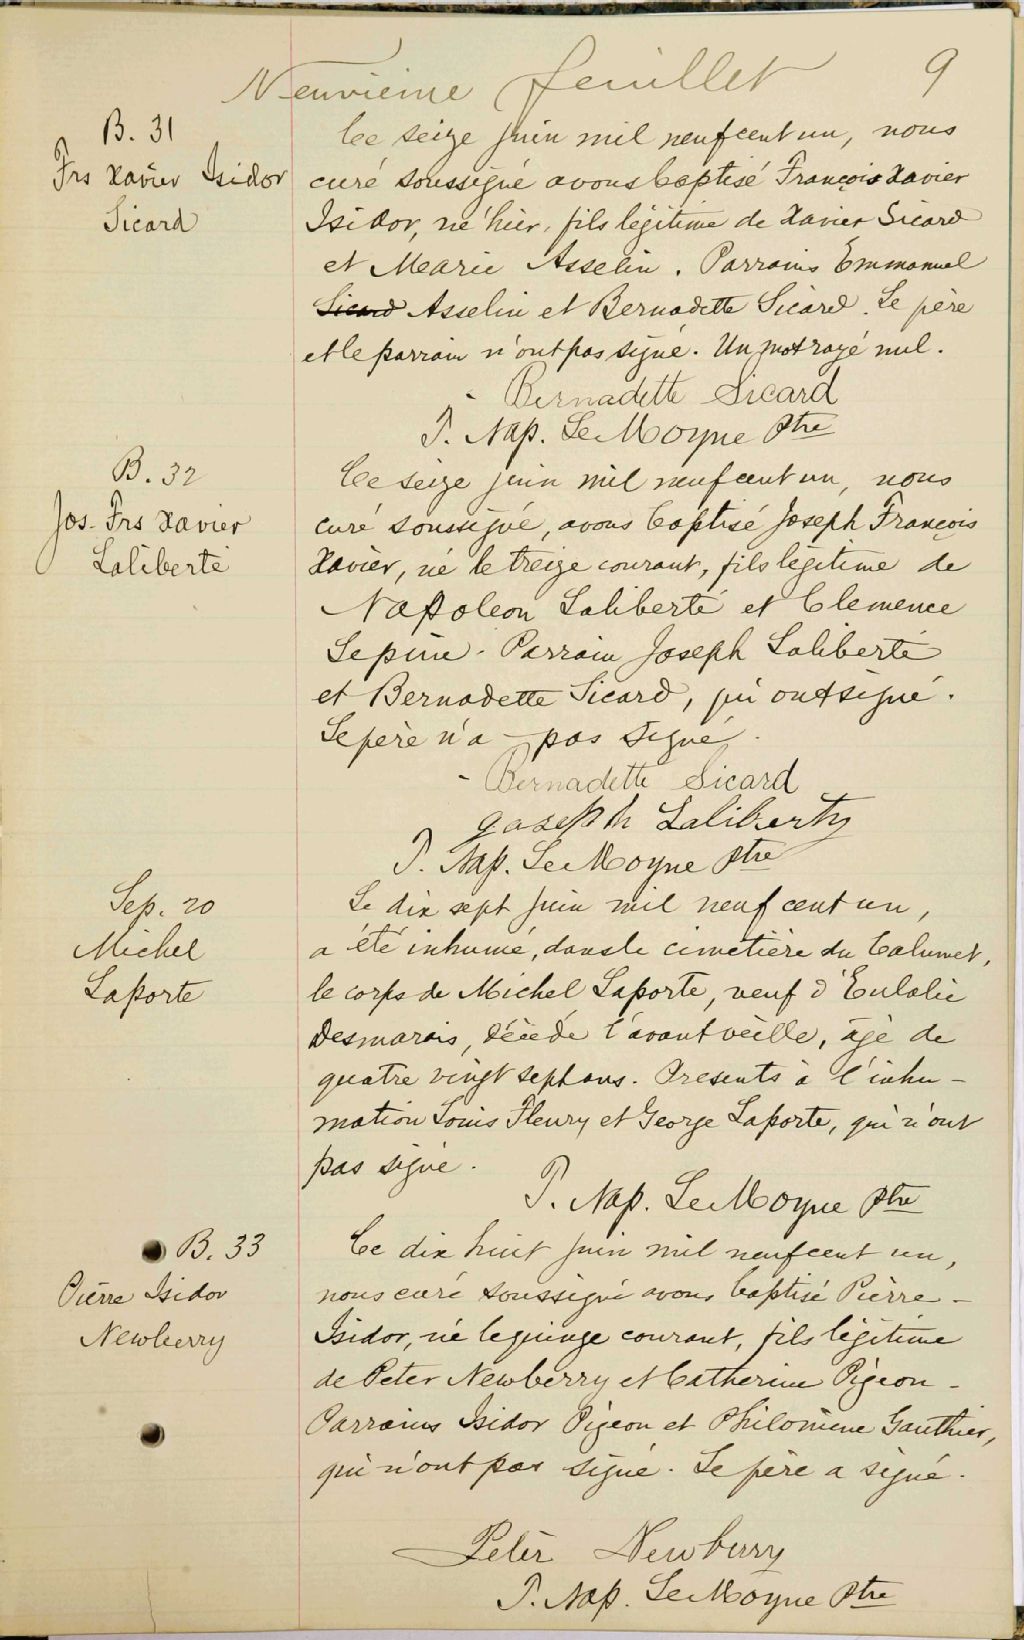 Neuvième feuillet 9
B. 31
Frs Xavier Isidor
Sicard
Ce seize juin mil neuf cent un, nous
curé soussigné avons baptisé François Xavier
Isidor, né hier, fils légitime de Xavier Sicard
et Marie Asselin. Parrains Emmanuel
Sicard Asselin et Bernadette Sicard. Le père
et le parrain n'ont pas signé. Un mot rayé nul.
Bernadette Sicard
P. Nap. LeMoyne Ptre
B. 32
Jos. Frs Xavier
Laliberté
Ce seize juin mil neuf cent un, nous
curé soussigné, avons baptisé Joseph François
Xavier, né le treize courant, fils légitime de
Napoleon Laliberté et Clemence
Lepine. Parrain Joseph Laliberté
et Bernadette Sicard, qui ont signé.
Le père n'a pas signé.
Bernadette Sicard
Goseph Laliberty
P. Nap. LeMoyne Ptre
Sep. 20
Michel
Laporte
Le dix sept juin mil neuf cent un,
a été inhumé, dans le cimetière du Calumet,
le corps de Michel Laporte, veuf d'Eulalie
Desmarais, décédé l'avant veille, âgé de
quatre vingt sept ans. Presents à l'inhu-
mation Louis Fleury et George Laporte, qui n'ont
pas signé.
P. Nap. LeMoyne Ptre
B. 33
Pierre Isidor
Newberry
Ce dix huit juin mil neuf cent un,
nous curé soussigné avons baptisé Pierre-
Isidor, né le quinze courant, fils légitime
de Peter Newberry et Catherine Pigeon-
Parrains Isidor Pigeon et Philomène Gauthier,
qui n'ont pas signé. Le père a signé.
Peter Newberry
P. Nap. LeMoyne Ptre